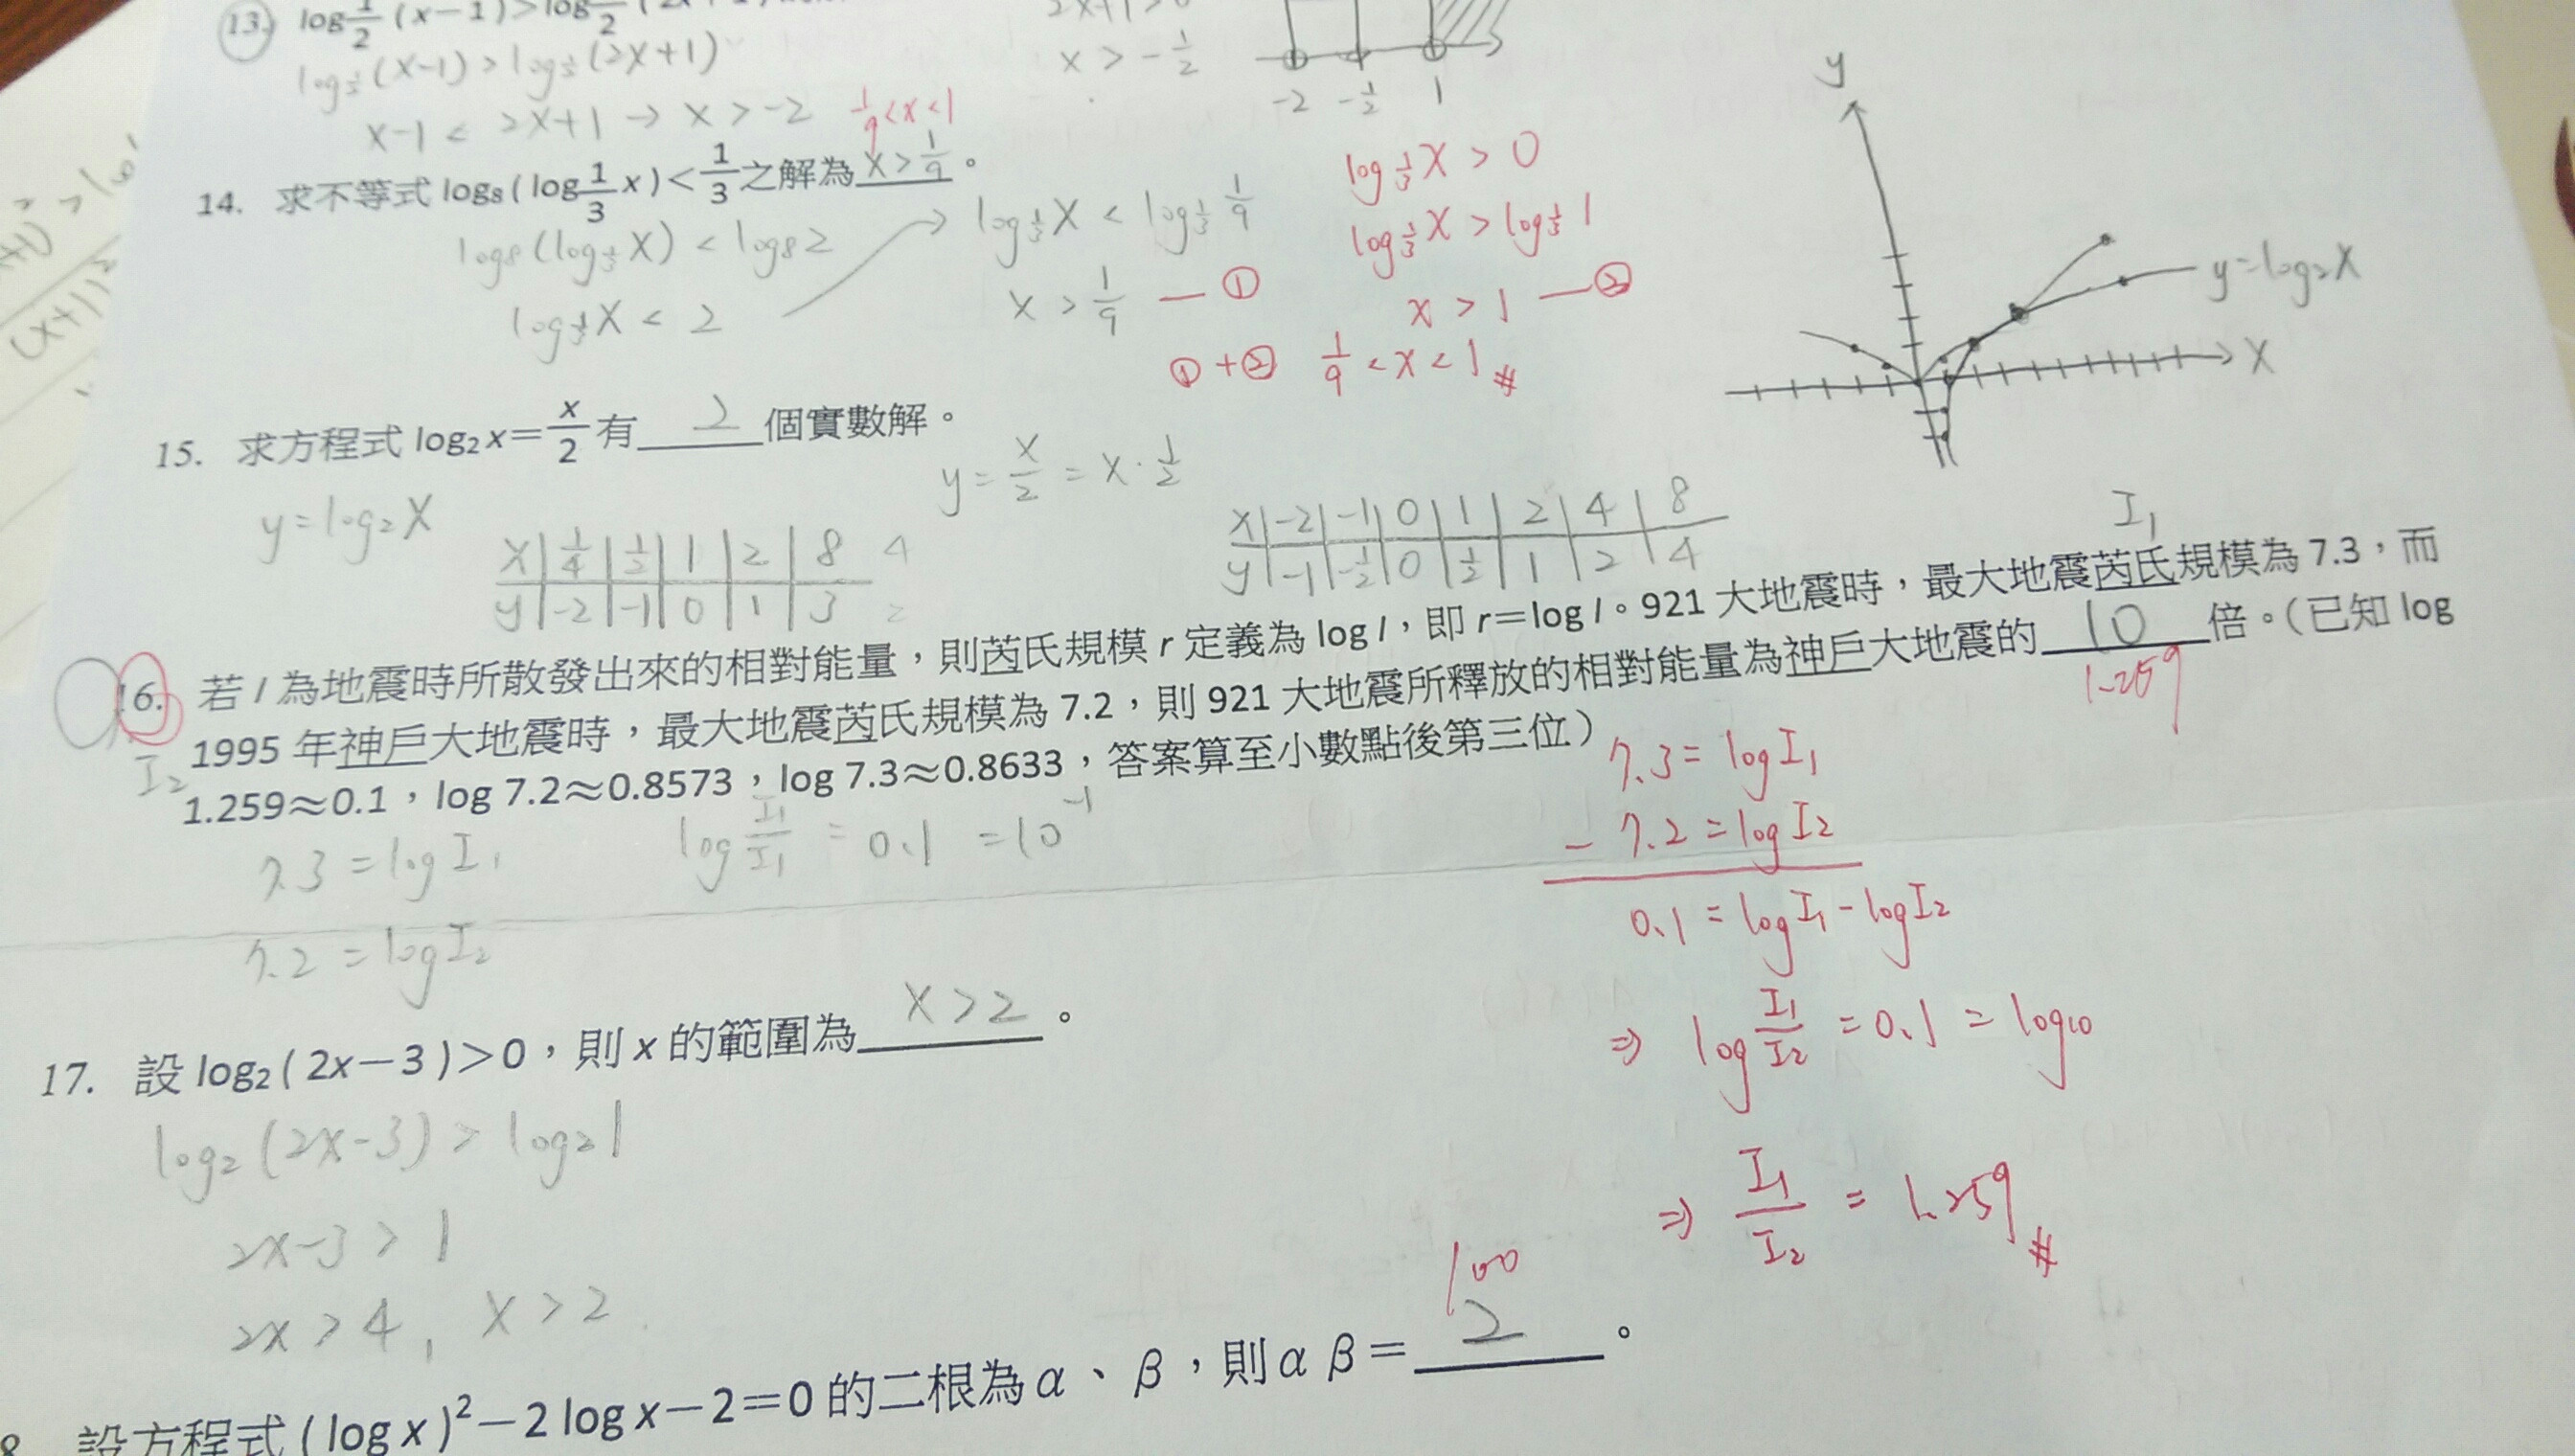 13. log 1/2 (x-1)>log 1/2 (2x+1)
log 1/2 (x-1) > log 1/2 (2x+1)
x-1 < 2x+1 → x > -2
2x+1>0
x > -1/2
-2 -1/2 1
1/9 < x < 1
14. 求不等式 log₈(log 1/3 x)<1/3 之解為 x > 1/9 。
log₈(log 1/3 x) < log₈2
log 1/3 x < 2
log 1/3 x < log 1/3 1/9
x > 1/9 — ①
log 1/3 x > 0
log 1/3 x > log 1/3 1
x > 1 — ②
①+② 1/9 < x < 1 #
y
y=log₂x
x
15. 求方程式 log₂x=x/2 有 2 個實數解。
y=log₂x
x | 1/4 | 1/2 | 1 | 2 | 8 4
y | -2 | -1 | 0 | 1 | 3 2
y = x/2 = x · 1/2
x | -2 | -1 | 0 | 1 | 2 | 4 | 8
y | -1 | -1/2 | 0 | 1/2 | 1 | 2 | 4
I₁
16. 若 I 為地震時所散發出來的相對能量,則芮氏規模 r 定義為 log I,即 r=log I。921 大地震時,最大地震芮氏規模為 7.3,而
1995 年神戶大地震時,最大地震芮氏規模為 7.2,則 921 大地震所釋放的相對能量為神戶大地震的 10 倍。(已知 log
1.259
I₂
1.259≈0.1,log 7.2≈0.8573,log 7.3≈0.8633,答案算至小數點後第三位)
7.3 = log I₁
7.2 = log I₂
log I₁/I₁ = 0.1 = 10⁻¹
7.3 = log I₁
- 7.2 = log I₂
0.1 = log I₁ - log I₂
⇒ log I₁/I₂ = 0.1 = log10
⇒ I₁/I₂ = 1.259 #
17. 設 log₂(2x-3)>0,則 x 的範圍為 x > 2 。
log₂(2x-3) > log₂1
2x-3 > 1
2x > 4, x > 2
100
8 設方程式(log x)²-2 log x-2=0 的二根為 α、β,則 α β= 2 。